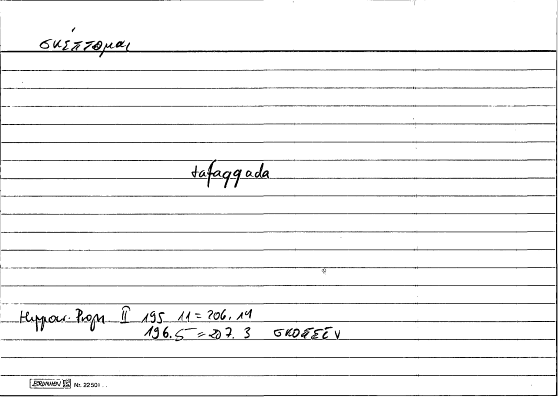 σκέπτομαι
tafaqqada
Hippocr. Progn. II 195 11 = 206.14
196.5 = 207.3 σκοπεῖν
BRUNNEN Nr. 2250